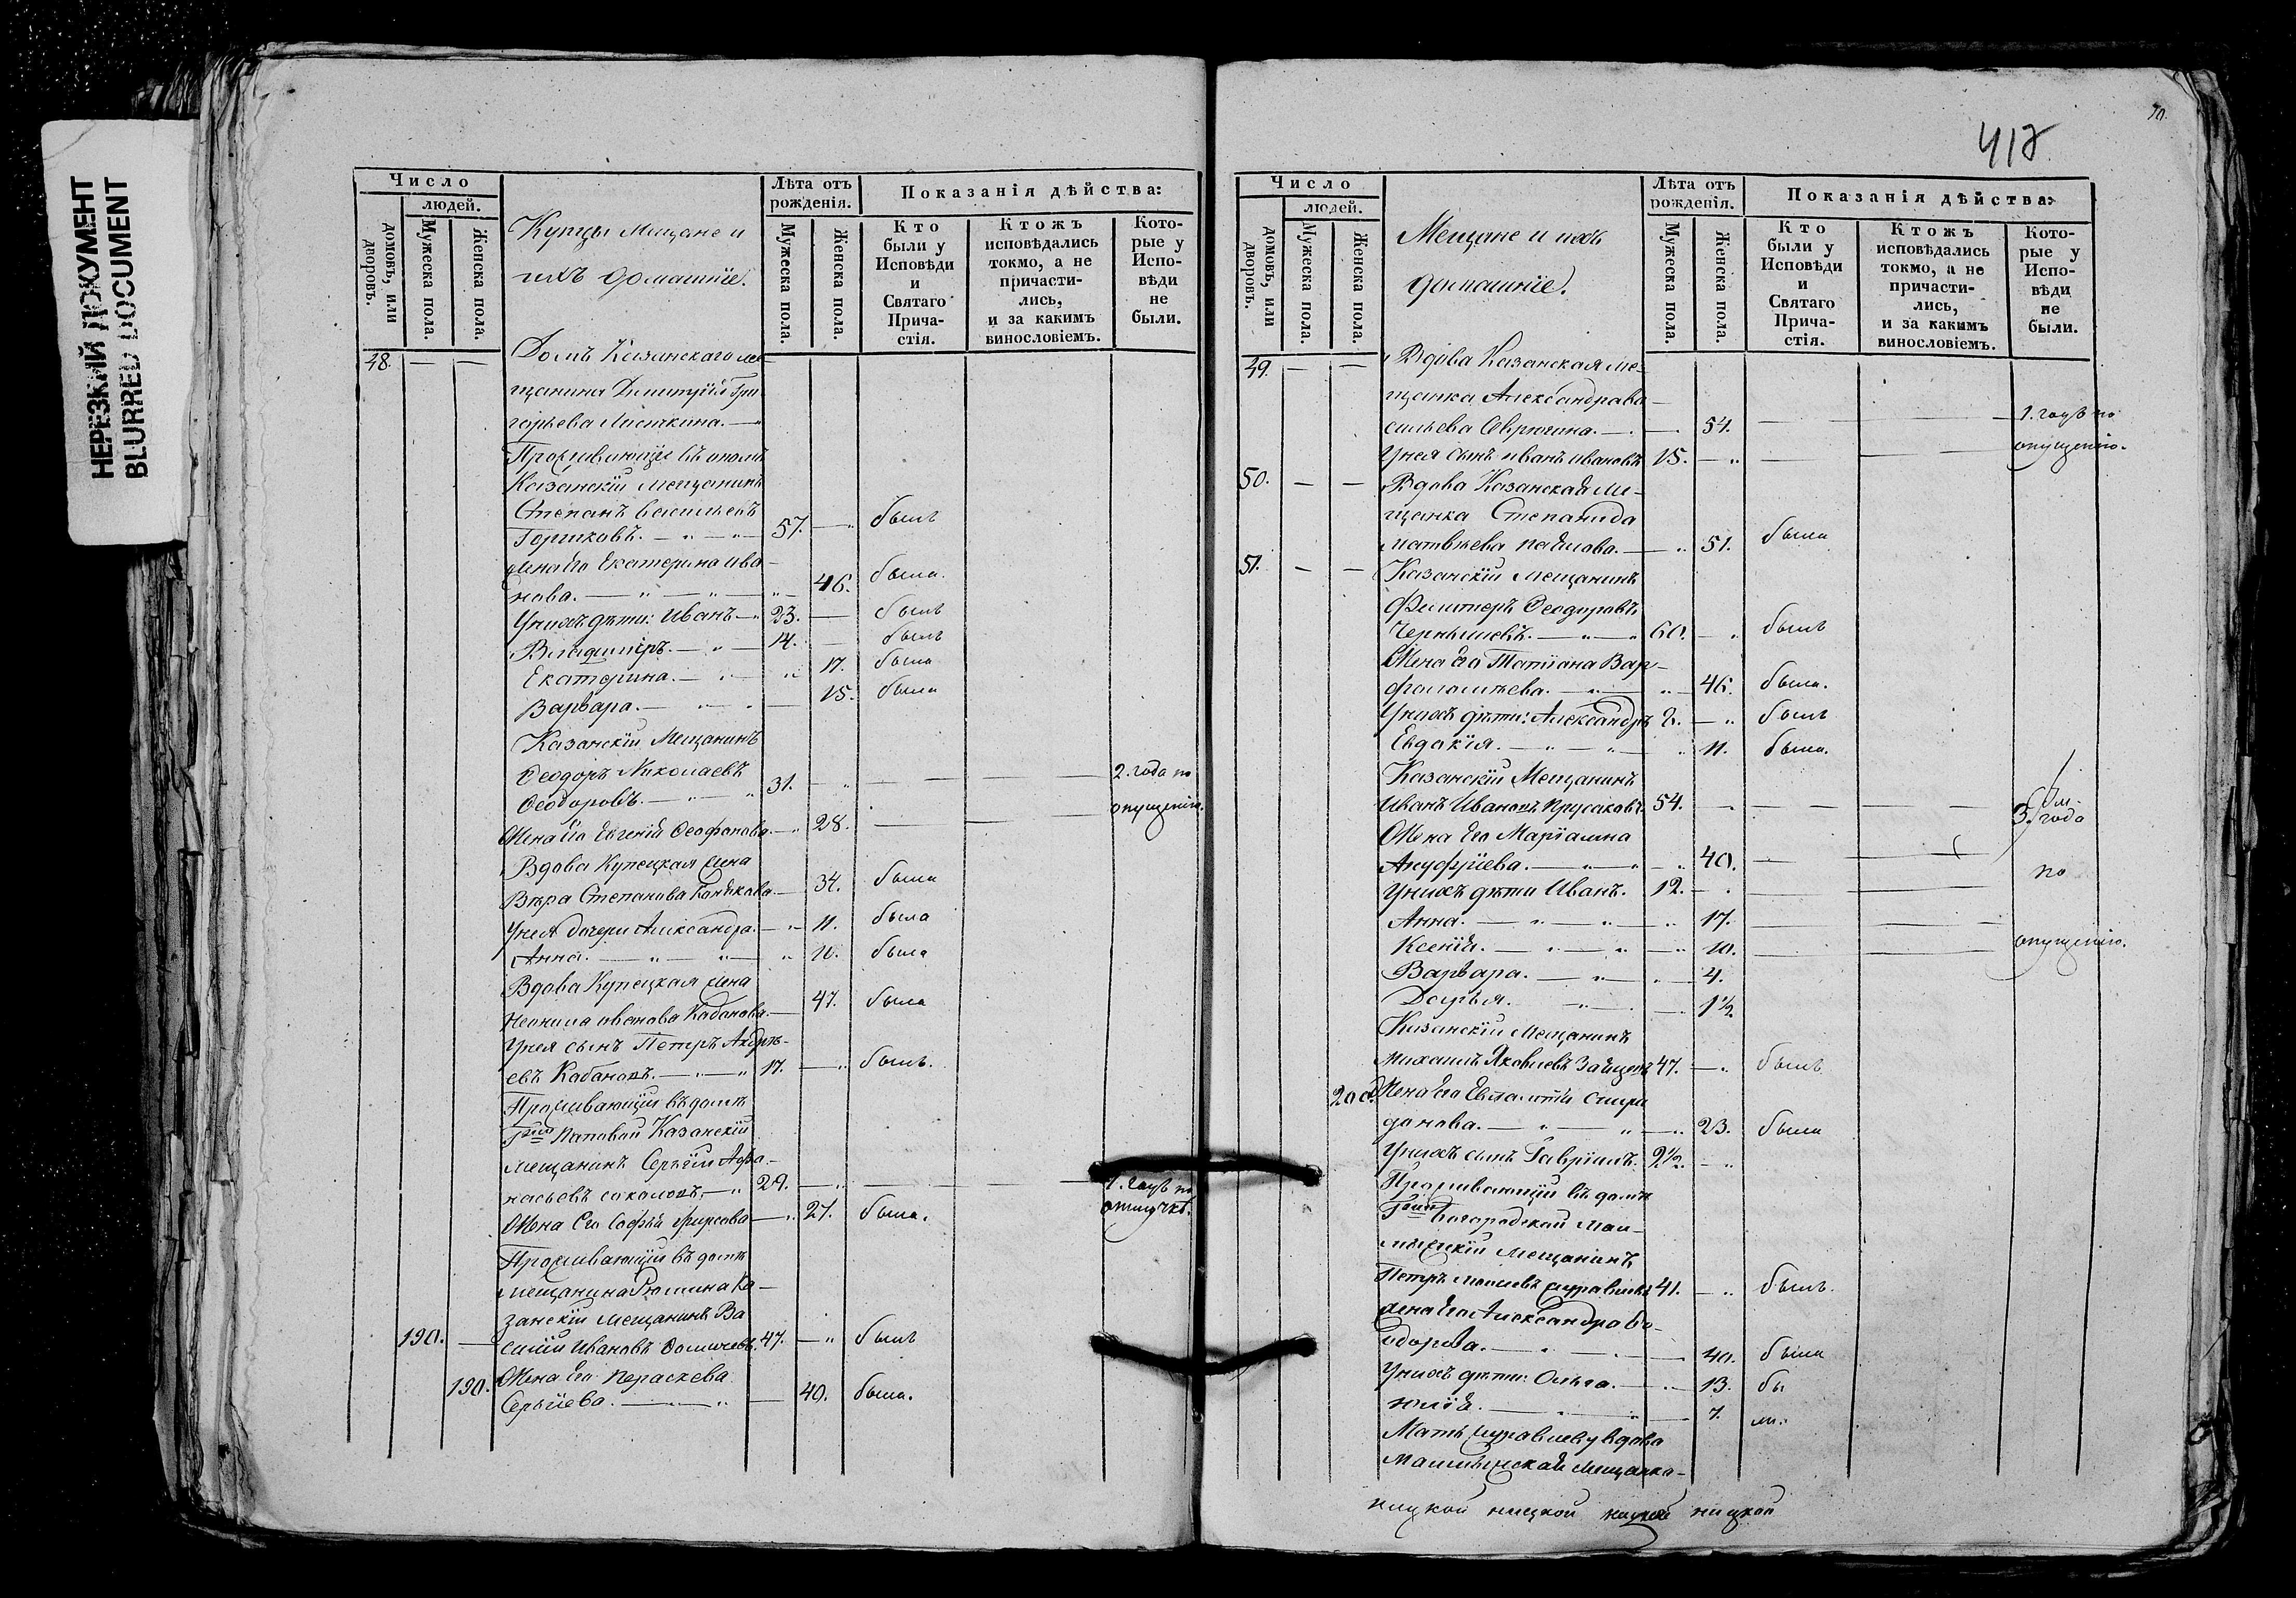 НЕРЕЗКИЙ ДОКУМЕНТ
BLURRED DOCUMENT
Число
людей.
домовъ, или дворовъ.
Мужеска пола.
Женска пола.
Купцы Мещане и
ихъ домашніе.
Лѣта отъ рожденія.
Мужеска пола.
Женска пола.
Показанія дѣйства:
Кто были у Исповѣди и Святаго Прича-стія.
Ктожъ исповѣдались токмо, а не причасти-лись, и за какимъ винословіемъ.
Кото-рые у Испо-вѣди не были.
48. — — Домъ Казанскаго ме-
щанина Димитрія Гри-
горьева Листкина. —
Проживающіе въ ономъ
Казанскій Мещанинъ
Степанъ Васильевъ
Горшковъ. — 57. — былъ
Жена Его Екатерина Ива-
нова. — 46. была.
У нихъ дѣти: Иванъ — 23. — былъ
Владиміръ. — 14. — былъ
Екатерина. — 17. была
Варвара. — 15. была
Казанскій Мещанинъ
Ѳеодоръ Николаевъ
Ѳеодоровъ. — 31. — 2. года по
опущенію.
Жена Его Евгенія Ѳеофанова. — 28. —
Вдова Купецкая жена
Вѣра Степанова — 34. была
У нея дочери Александра. — 11. была
Анна. — 10. была
Вдова Купецкая жена
Неонила Иванова Кабанова. — 47. была
У нея сынъ Петръ Андре-
евъ Кабановъ. — 17. — былъ.
Проживающій въ домѣ
Г-жи Поповой Казанскій
мещанинъ Сергѣй Афа-
насьевъ Соколовъ. — 29. — 1. годъ по
отлучкѣ.
Жена Его Софія Фирсова — 27. была.
Проживающій въ домѣ
мещанина Рюмина Ка-
занскій мещанинъ Ва
190. — силій Ивановъ 47. — былъ
190. Жена Его Параскева
Сергѣева. — 40. была.
70.
417
Число
людей.
домовъ, или дворовъ.
Мужеска пола.
Женска пола.
Мещане и ихъ
домашніе.
Лѣта отъ рожденія.
Мужеска пола.
Женска пола.
Показанія дѣйства:
Кто были у Исповѣди и Святаго Прича-стія.
Ктожъ исповѣдались токмо, а не причасти-лись, и за какимъ винословіемъ.
Кото-рые у Испо-вѣди не были.
49. — — Вдова Казанская ме-
щанка Александра Ва-
сильева Севрюгина. — 54. — 1. годъ по
опущенію.
У нея сынъ Иванъ Ивановъ 15. —
50. — — Вдова Казанская Ме-
щанка Степанида
Матвѣева Павлова. — 51. была
51. — — Казанскій Мещанинъ
Филитеръ Ѳеодоровъ
Чернышевъ. — 60. — былъ
Жена Его Татіана Вар-
фоломѣева. — 46. была.
У нихъ дѣти: Александръ 8. — былъ
Евдокія. — 11. была.
Казанскій Мещанинъ
Иванъ Ивановъ Прусаковъ. 54. — 3. года
Жена Его Маріамна
Ануфріева. — 40. — по
У нихъ дѣти Иванъ. 12. —
Анна. — 17. —
Ксенія. — 10. — опущенію.
Варвара. — 4.
Дарья. — 1½
Казанскій Мещанинъ
Михаилъ Яковлевъ Зайцевъ 47. — былъ
200. Жена Его Евлампія Спири
донова. — 23. была
У нихъ сынъ Гавріилъ. 2½. —
Проживающій въ домѣ
Г-жи Богородской Мам-
мещанинъ
Петръ Моисеевъ Журавлевъ 41. — былъ.
Жена Его Александра Ѳе-
одорова. — 40. была
У нихъ дѣти: Ольга. — 13. бы
Юлія. — 7. ли.
Мать Журавлеву вдова
Мамадышская мещанка —
ницкой ницкой ницкой ницкой